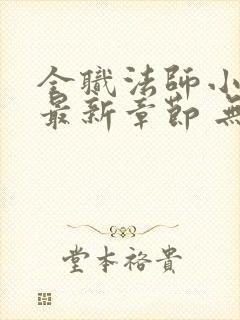 全職法師小
最新章節 無
堂本裕貴